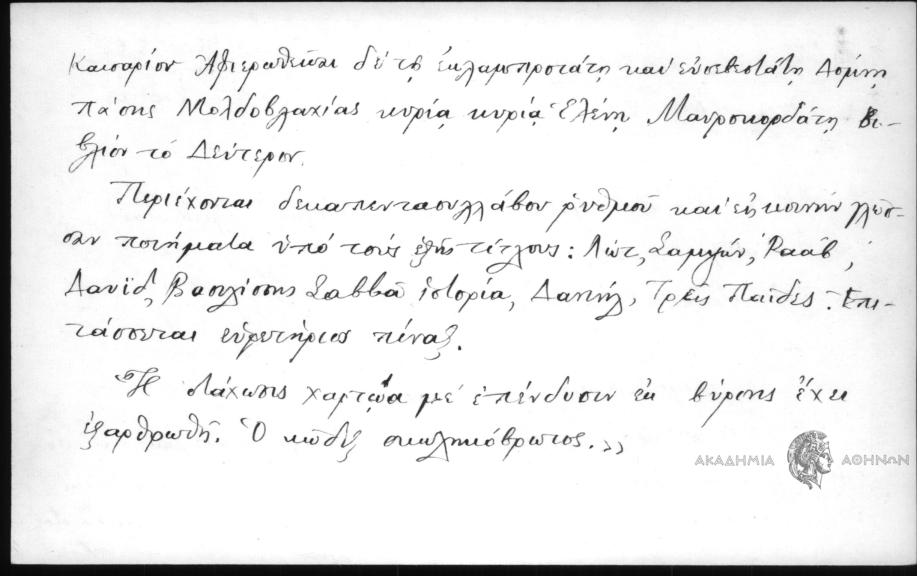 Καισαρίου Ἀφιερωθεῖσαι δὲ τῇ ἐκλαμπροτάτῃ καὶ εὐσεβεστάτῃ Δόμνῃ
πάσης Μολδοβλαχίας κυρίᾳ κυρίᾳ Ἑλένῃ Μαυροκορδάτῃ Βι-
βλίον τὸ Δεύτερον.
Περιέχονται δεκαπεντασυλλάβου ρυθμοῦ καὶ εἰς κοινὴν γλῶσ-
σαν ποιήματα ὑπὸ τοὺς ἑξῆς τίτλους: Λώτ, Σαμψών, Ῥαάβ,
Δαυΐδ, Βασιλίσσης Σαββᾶ ἱστορία, Δανιήλ, Τρεῖς Παῖδες. Ἐπι-
τάσσεται εὑρετήριος πίναξ.
Ἡ στάχωσις χαρτώα μὲ ἐπένδυσιν ἐκ βύρσης ἔχει
ἐξαρθρωθῆ. Ὁ κῶδιξ σκωληκόβρωτος.»
ΑΚΑΔΗΜΙΑ ΑΘΗΝΩΝ